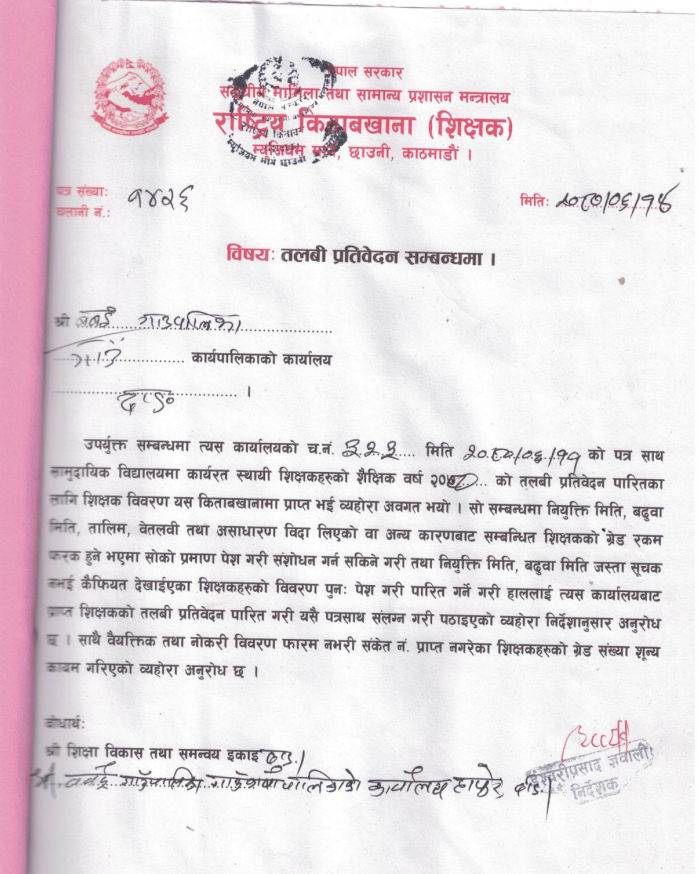 नेपाल सरकार
सङ्घीय मामिला तथा सामान्य प्रशासन मन्त्रालय
राष्ट्रिय किताबखाना (शिक्षक)
म्यूजियम मार्ग, छाउनी, काठमाडौं ।
पत्र संख्याः
चलानी नं.: १४२६
मितिः २०८०/०६/१५
विषयः तलबी प्रतिवेदन सम्बन्धमा ।
श्री बबई गाउँपालिका
गाउँ कार्यपालिकाको कार्यालय
दाङ ।
उपर्युक्त सम्बन्धमा त्यस कार्यालयको च.नं. ३२२ मिति २०८०/०६/११ को पत्र साथ
सामुदायिक विद्यालयमा कार्यरत स्थायी शिक्षकहरुको शैक्षिक वर्ष को तलबी प्रतिवेदन पारितका
लागि शिक्षक विवरण यस किताबखानामा प्राप्त भई व्यहोरा अवगत भयो । सो सम्बन्धमा नियुक्ति मिति, बढुवा
मिति, तालिम, वेतलवी तथा असाधारण विदा लिएको वा अन्य कारणबाट सम्बन्धित शिक्षकको ग्रेड रकम
फरक हुने भएमा सोको प्रमाण पेश गरी संशोधन गर्न सकिने गरी तथा नियुक्ति मिति, बढुवा मिति जस्ता सूचक
नभई कैफियत देखाईएका शिक्षकहरुको विवरण पुनः पेश गरी पारित गर्ने गरी हाललाई त्यस कार्यालयबाट
प्राप्त शिक्षकको तलबी प्रतिवेदन पारित गरी यसै पत्रसाथ संलग्न गरी पठाइएको व्यहोरा निर्देशानुसार अनुरोध
छ । साथै वैयक्तिक तथा नोकरी विवरण फारम नभरी संकेत नं. प्राप्त नगरेका शिक्षकहरुको ग्रेड संख्या शून्य
कायम गरिएको व्यहोरा अनुरोध छ ।
बोधार्थः
श्री शिक्षा विकास तथा समन्वय इकाइ दाङ।
श्री बबई गाउँपालिका गाउँ कार्यपालिकाको कार्यालय हापुरे, दाङ।
ईश्वरीप्रसाद ज्ञवाली
निर्देशक